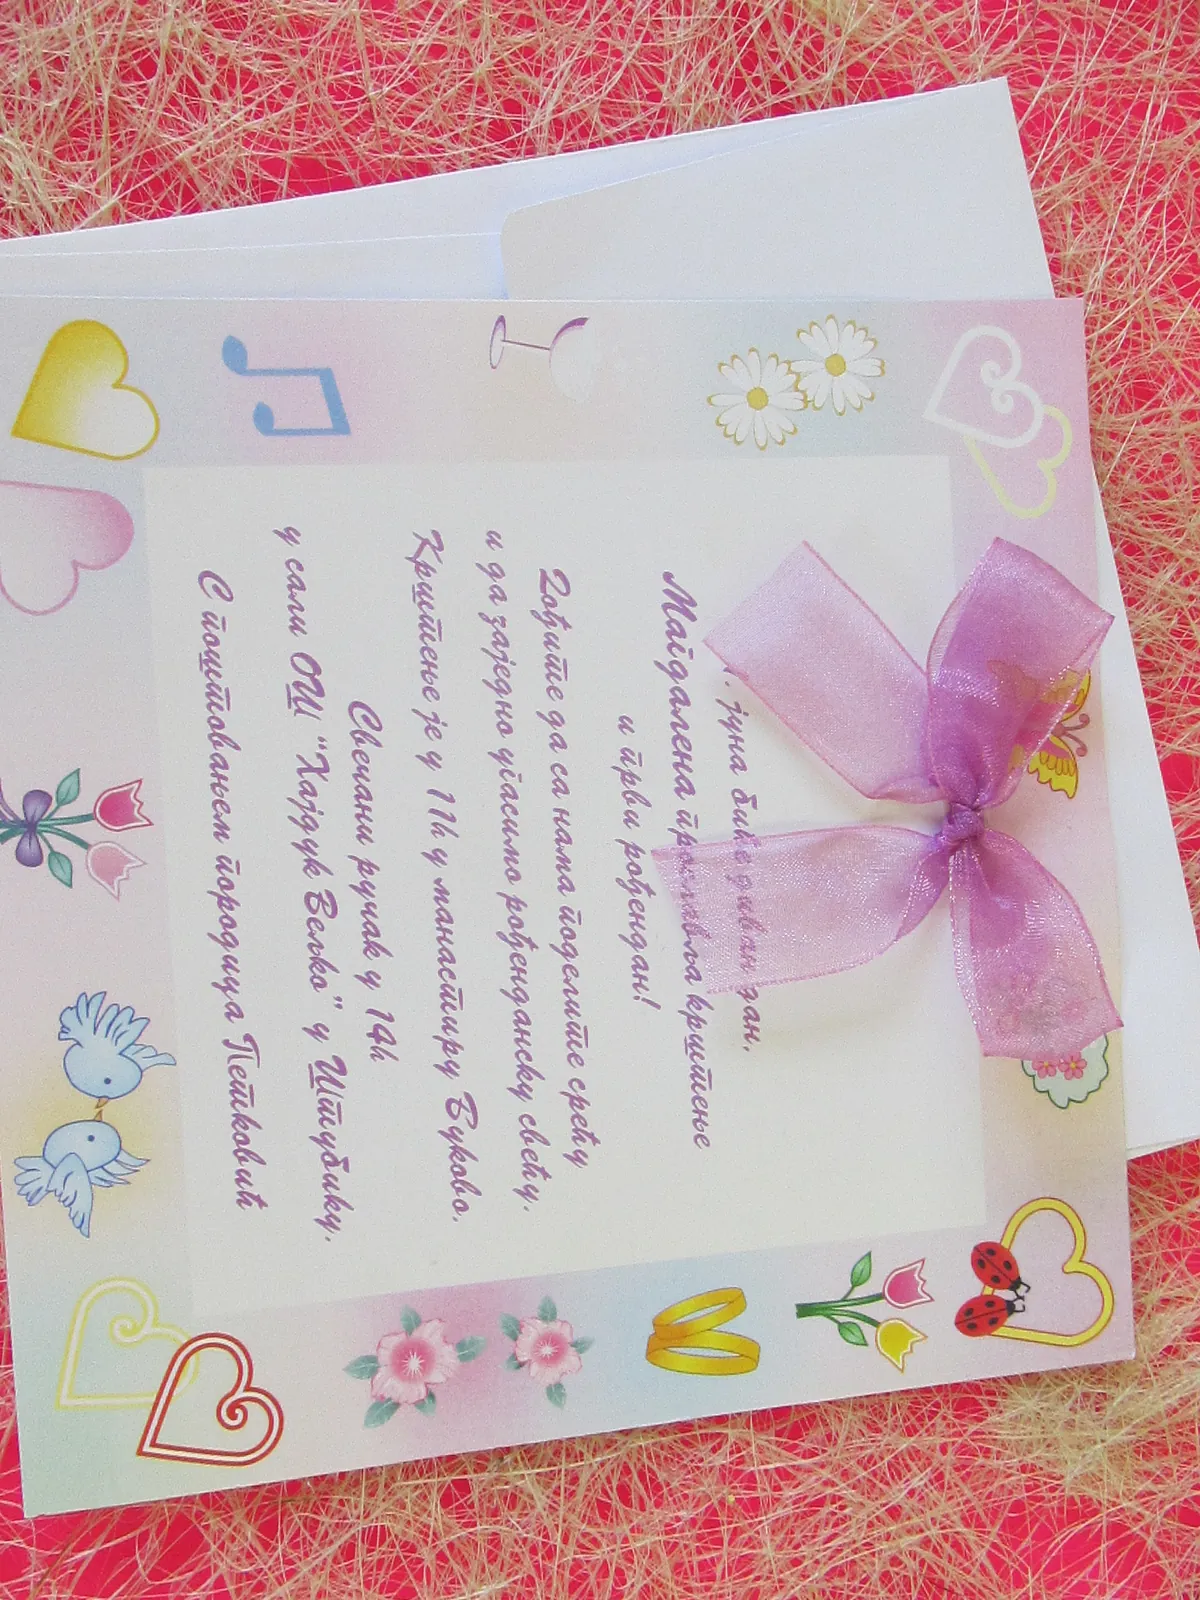 јуна биће диван дан,
Магдалена прославља крштење
и први рођендан!
Дођите да са нама поделите срећу
и да заједно угасимо рођенданску свећу.
Крштење је у 11h у манастиру Буково.
Свечани ручак у 14h
у сали ОШ "Хајдук Вељко" у Штубику.
С поштовањем породица Петковић